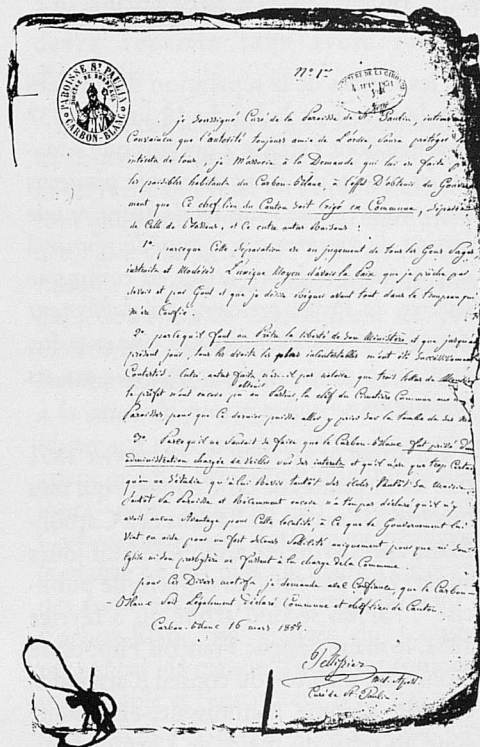 PAROISSE St PAULIN
CARBON-BLANC
N° 1er
DE LA GIRONDE
je soussigné Curé de la Paroisse de St Paulin, intimement
Convaincu que l'autorité toujours amie de l'ordre, saura protéger les
intérêts de tous, je m'associe à la Demande qui lui est faite par
les paisibles habitants du Carbon-Blanc, à l'effet D'obtenir du Gouverne-
ment que Ce chef lieu du Canton soit érigé en Commune, séparée
de Celle de Bassens, et Ce entre autres Raisons :
1° parceque Cette séparation est au jugement de tous les Gens sages
instruits et modérés L'unique Moyen d'avoir la Paix que je prêche par
devoir et par Gout et que je désire voir régner avant tout dans le troupeau qui
m'est Confié.
2° parcequ'il faut au Prêtre la liberté de son Ministère et que jusqu'à
présent jour, tous les droits les plus incontestables m'ont été successivement
Contestés. Entre autres faits, n'est-il pas notoire que trois lettres de
le préfet n'ont encore pu obtenir en faveur, la clef du Cimetière Commun aux deux
Paroisses pour que Ce dernier puisse aller y prier sur la tombe de ses
3° Parcequ'il ne saurait se faire que le Carbon-Blanc fut privé d'une
administration chargée de veiller sur ses intérêts et qu'il n'est que trop Certain
qu'on ne s'étudie qu'à lui Ravir tantôt des écoles, tantôt son Mairie,
tantôt sa Paroisse et Récemment encore n'a-t-on pas déclaré qu'il n'y
avait aucun Avantage pour Cette localité, à Ce que le Gouvernement lui
vint en aide pour un fort secours sollicité uniquement pour que ni son
Eglise ni son presbytère ne fussent à la charge de la Commune
pour Ces Divers motifs je demande avec Confiance, que le Carbon-
Blanc soit Légalement Déclaré Commune et chef lieu de Canton.
Carbon-Blanc 16 mars 1851.
Pellissier
Curé de St Paulin